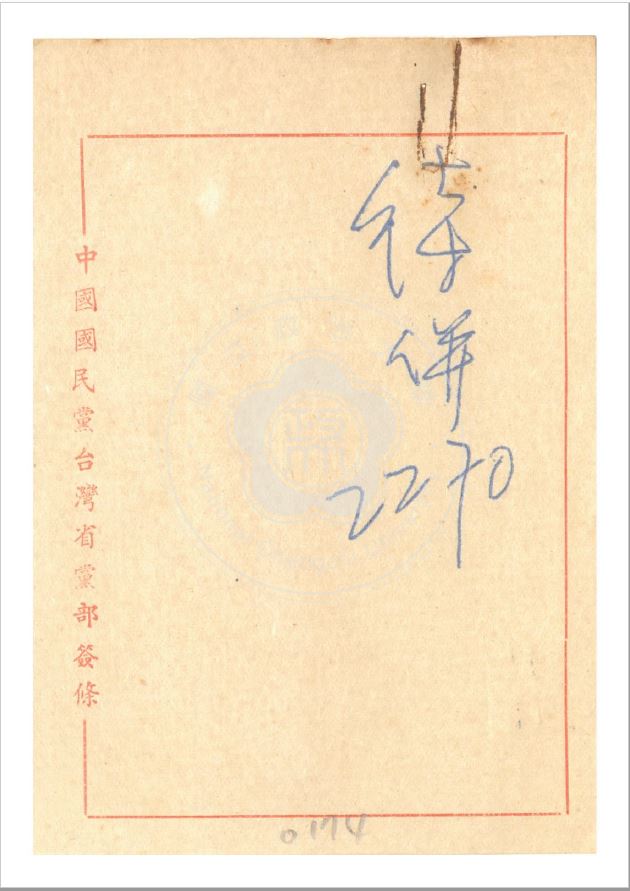 待併
2270
中國國民黨台灣省黨部簽條
0174